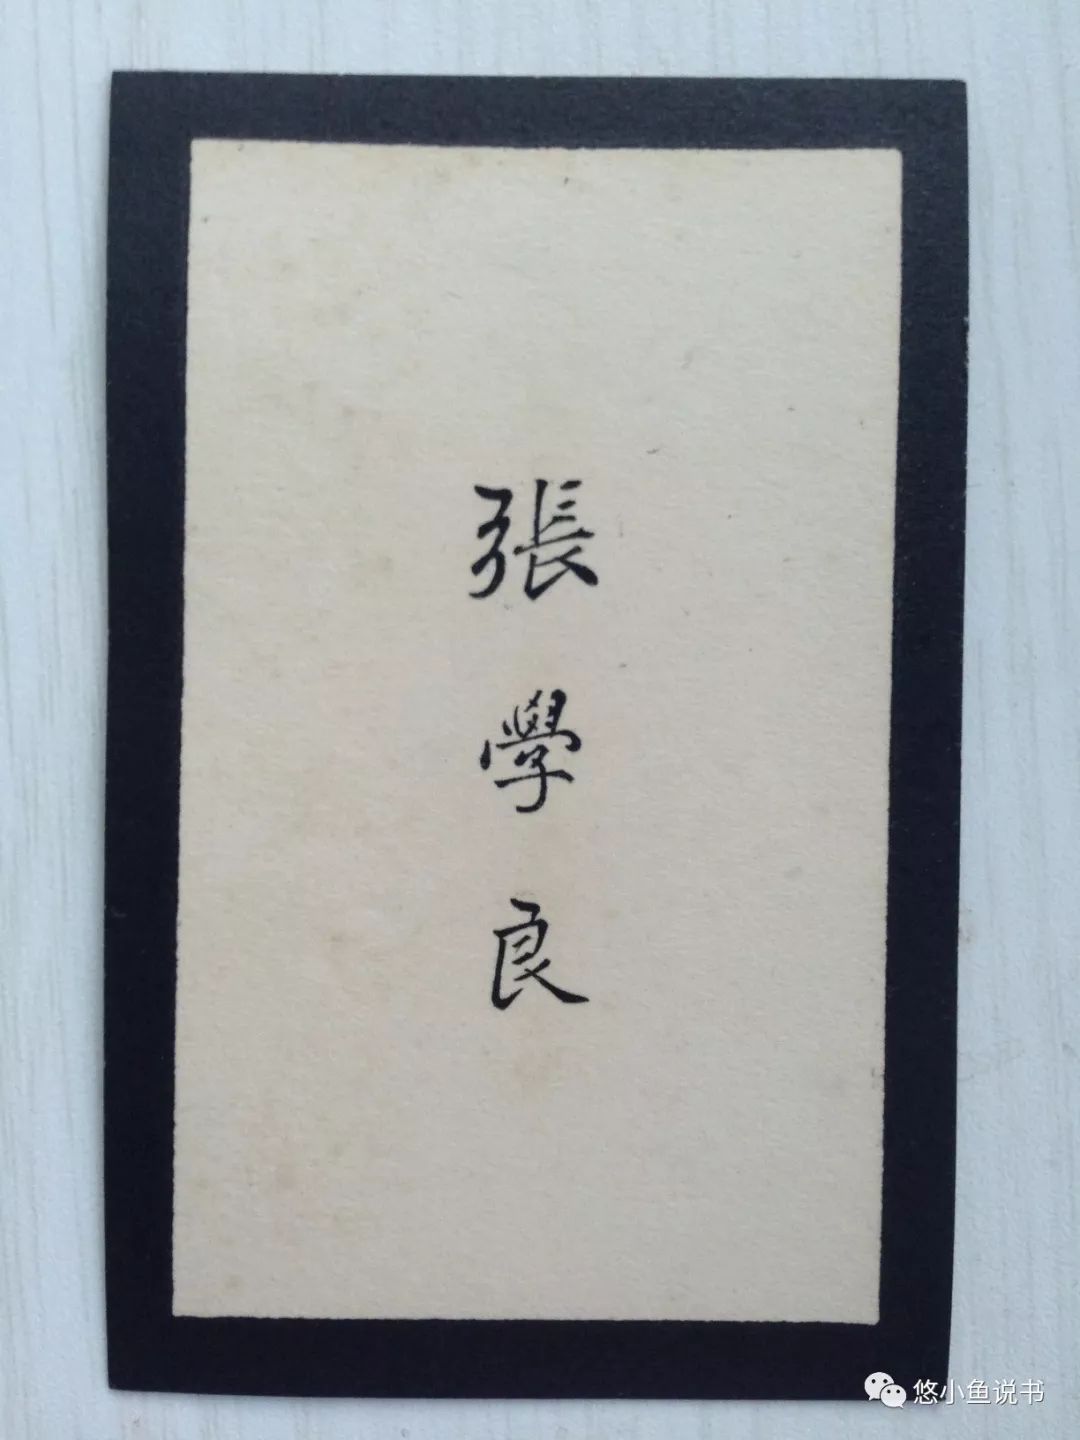 張學良
悠小鱼说书